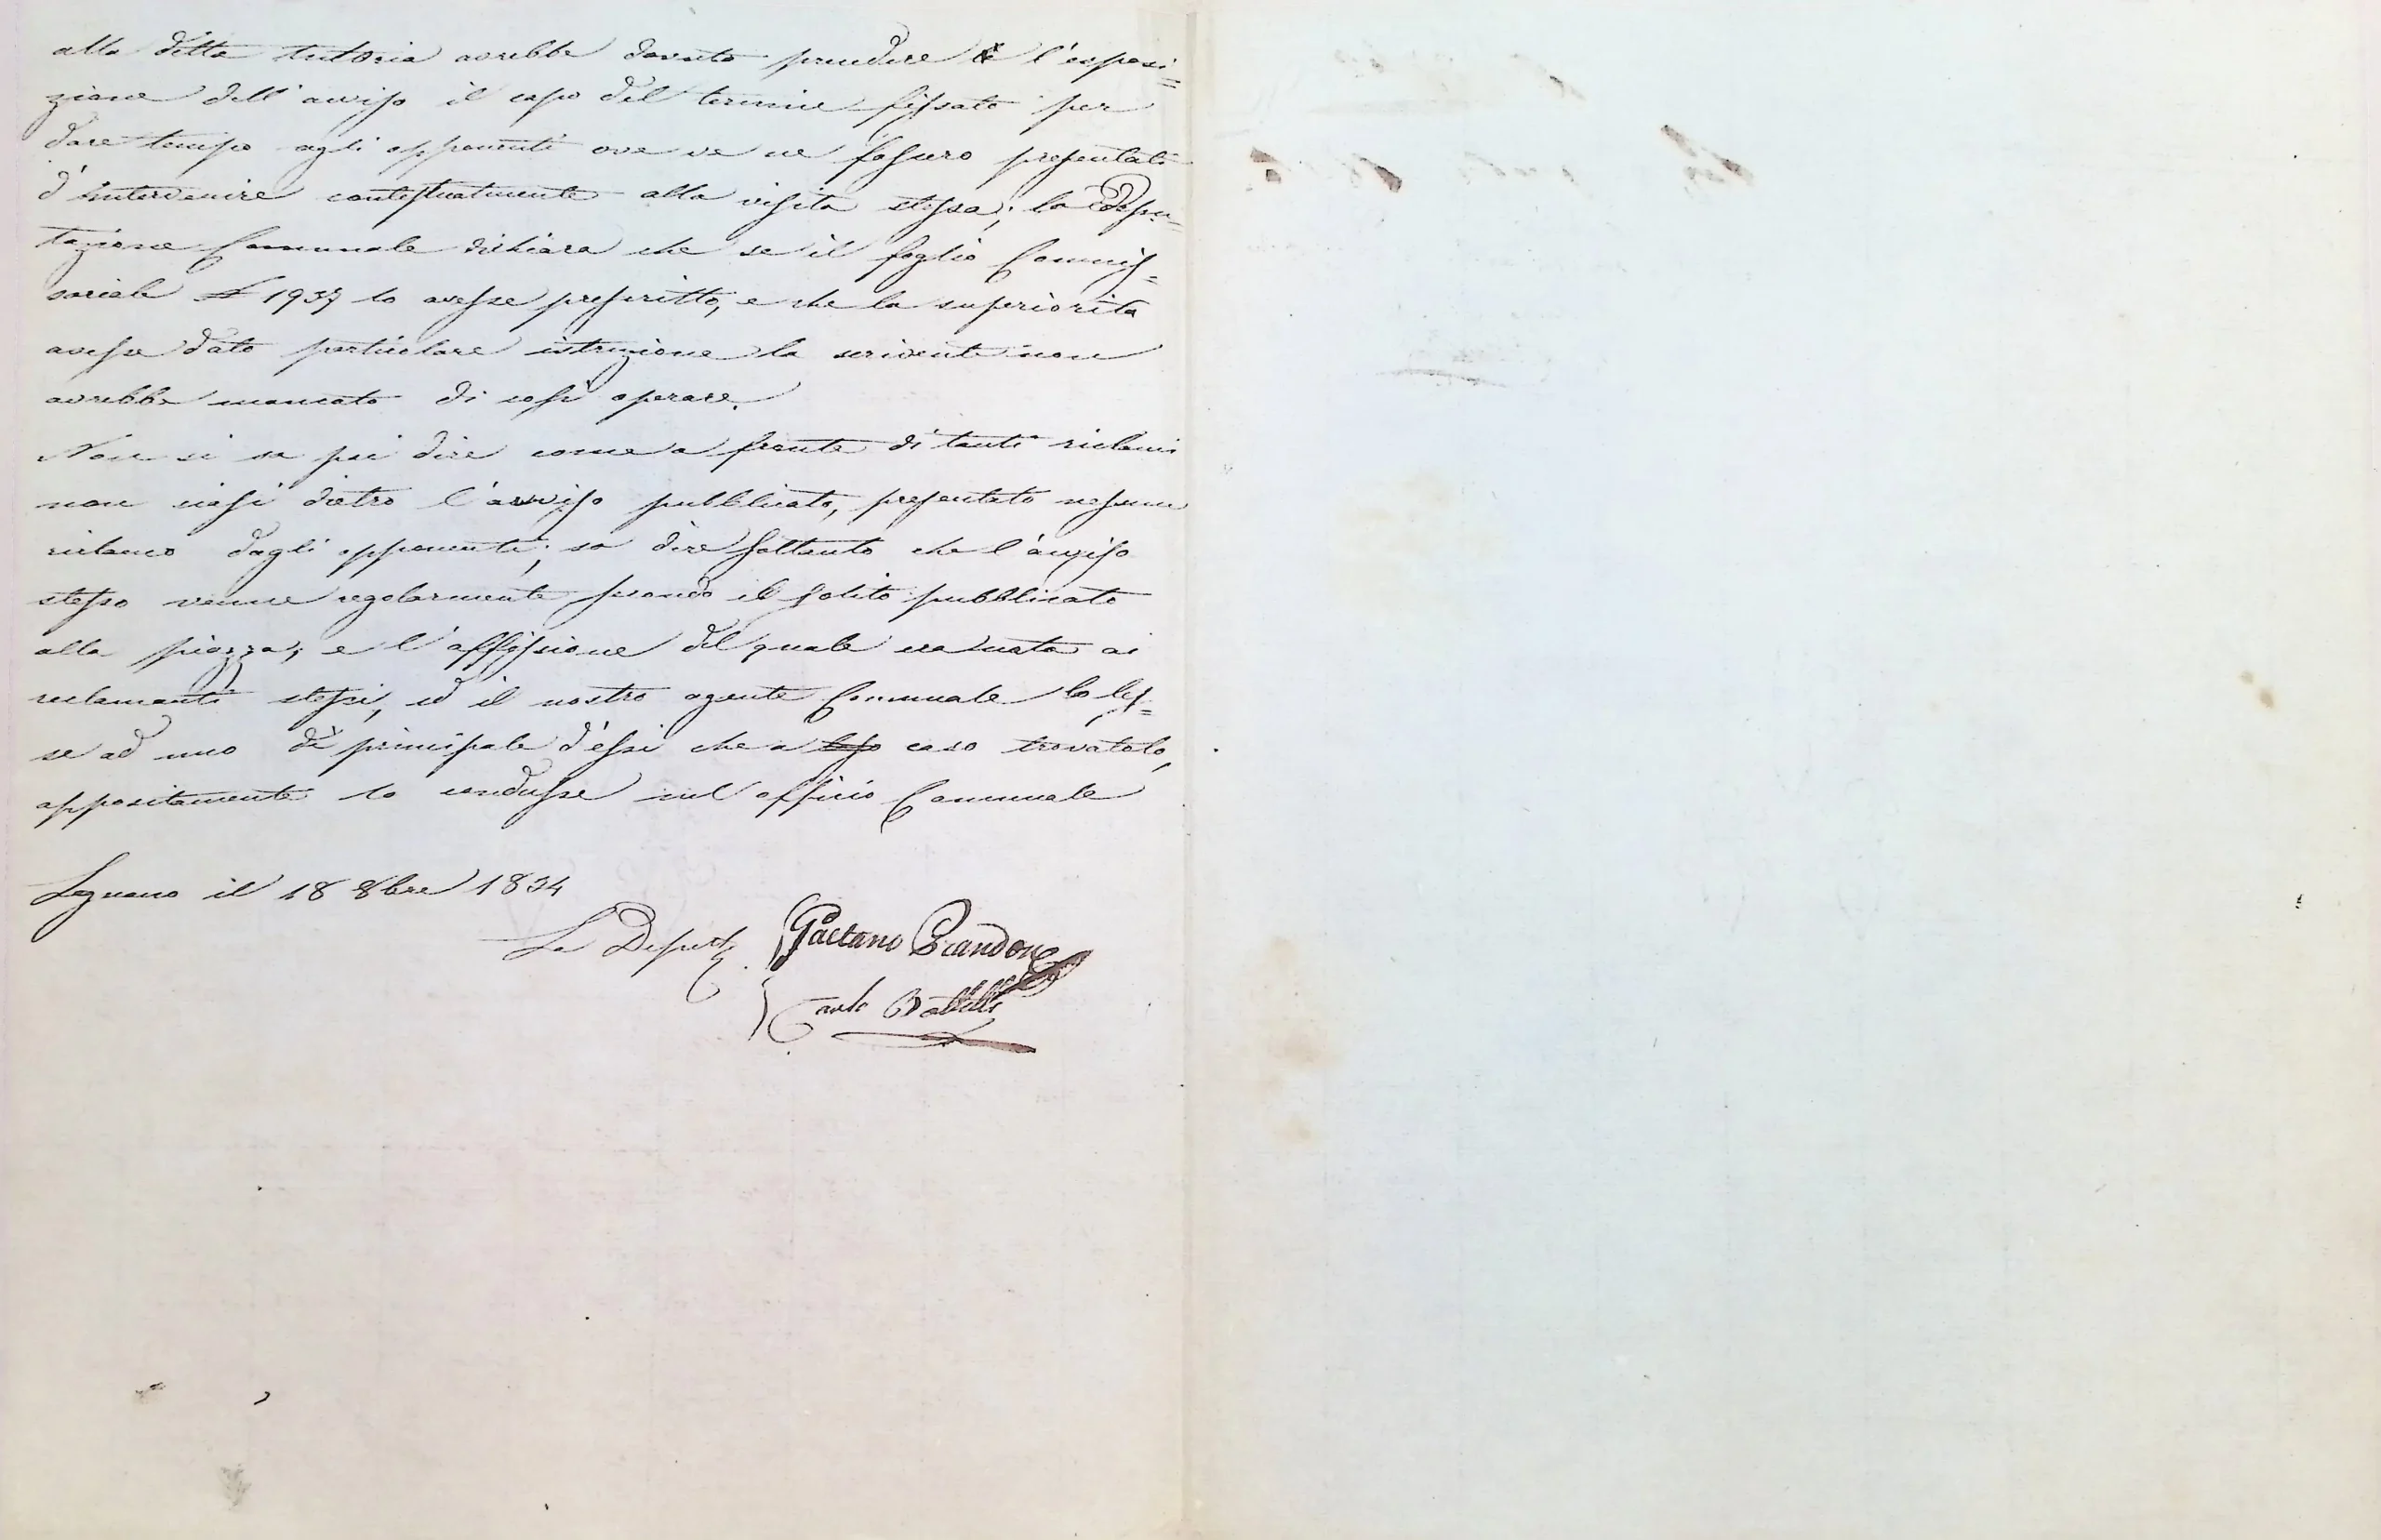 alla detta tutoria avrebbe dovuto precedere l'esposi=
zione dell'avviso il capo del termine fissato per
dare tempo agli opponenti ove ve ne fossero presentati
d'intervenire contestualmente alla visita stessa; la Depu=
tazione Comunale dichiara che se il foglio Commis=
sariale N 1937 lo avesse prescritto, e che la superiorità
avesse dato particolare istruzione la scrivente non
avrebbe mancato di così operare.
Non si sa poi dire come a fronte di tanti reclami
non siasi dietro l'avviso pubblicato, presentato nessun
reclamo dagli opponenti; sa dire soltanto che l'avviso
stesso venne regolarmente secondo il solito pubblicato
alla piazza; e l'affissione del quale era nota ai
reclamanti stessi, ed il nostro agente Comunale lo les=
se ad uno di principale d'essi che a caso trovatolo,
appositamente lo condusse nel officio Comunale
Legnano il 18 8bre 1834
La Deput.
Gaetano Brandone
Carlo